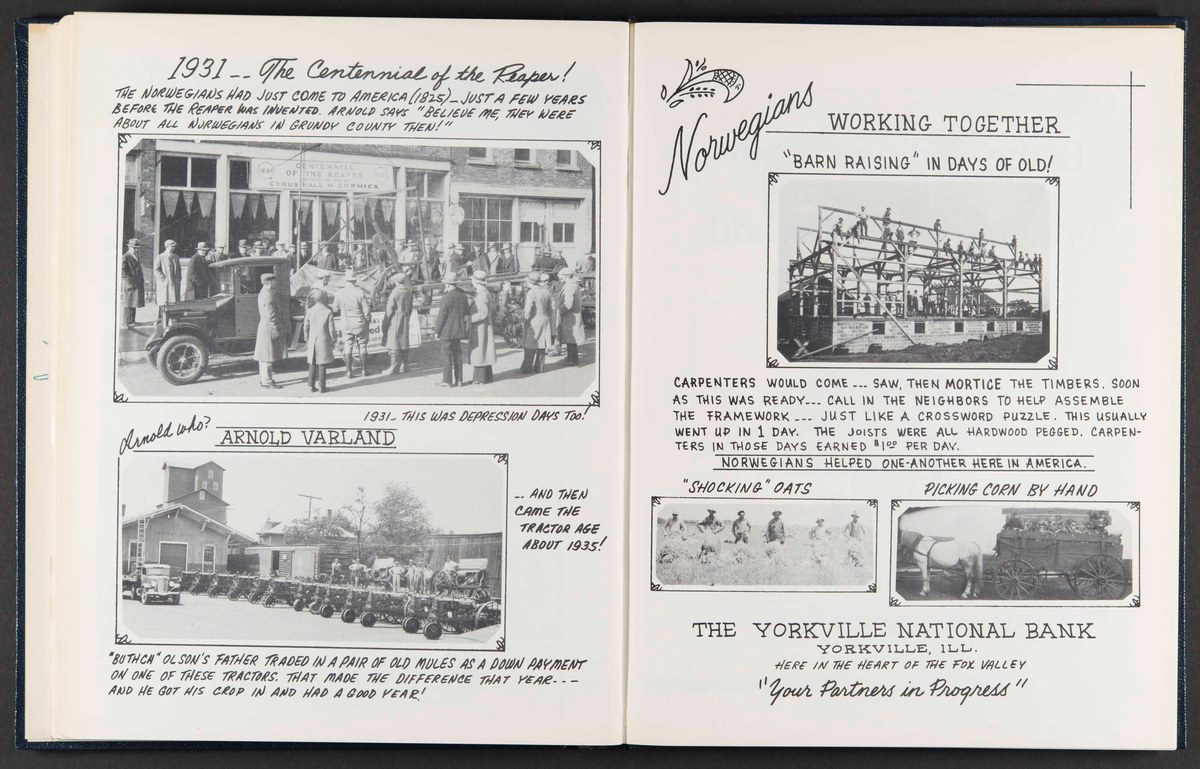 1931 -- The Centennial of the Reaper!
THE NORWEGIANS HAD JUST COME TO AMERICA (1825) - JUST A FEW YEARS
BEFORE THE REAPER WAS INVENTED. ARNOLD SAYS "BELIEVE ME, THEY WERE
ABOUT ALL NORWEGIANS IN GRUNDY COUNTY THEN!"
1831 CENTENNIAL 1931
OF THE REAPER
CYRUS HALL McCORMICK
1931 - THIS WAS DEPRESSION DAYS TOO!
Arnold who?
ARNOLD VARLAND
-- AND THEN
CAME THE
TRACTOR AGE
ABOUT 1935!
"BUTHCH" OLSON'S FATHER TRADED IN A PAIR OF OLD MULES AS A DOWN PAYMENT
ON ONE OF THESE TRACTORS. THAT MADE THE DIFFERENCE THAT YEAR---
AND HE GOT HIS CROP IN AND HAD A GOOD YEAR!
Norwegians
WORKING TOGETHER
"BARN RAISING" IN DAYS OF OLD!
CARPENTERS WOULD COME --- SAW, THEN MORTICE THE TIMBERS. SOON
AS THIS WAS READY--- CALL IN THE NEIGHBORS TO HELP ASSEMBLE
THE FRAMEWORK --- JUST LIKE A CROSSWORD PUZZLE. THIS USUALLY
WENT UP IN 1 DAY. THE JOISTS WERE ALL HARDWOOD PEGGED. CARPEN-
TERS IN THOSE DAYS EARNED $1.00 PER DAY.
NORWEGIANS HELPED ONE-ANOTHER HERE IN AMERICA.
"SHOCKING" OATS
PICKING CORN BY HAND
THE YORKVILLE NATIONAL BANK
YORKVILLE, ILL.
HERE IN THE HEART OF THE FOX VALLEY
"Your Partners in Progress"